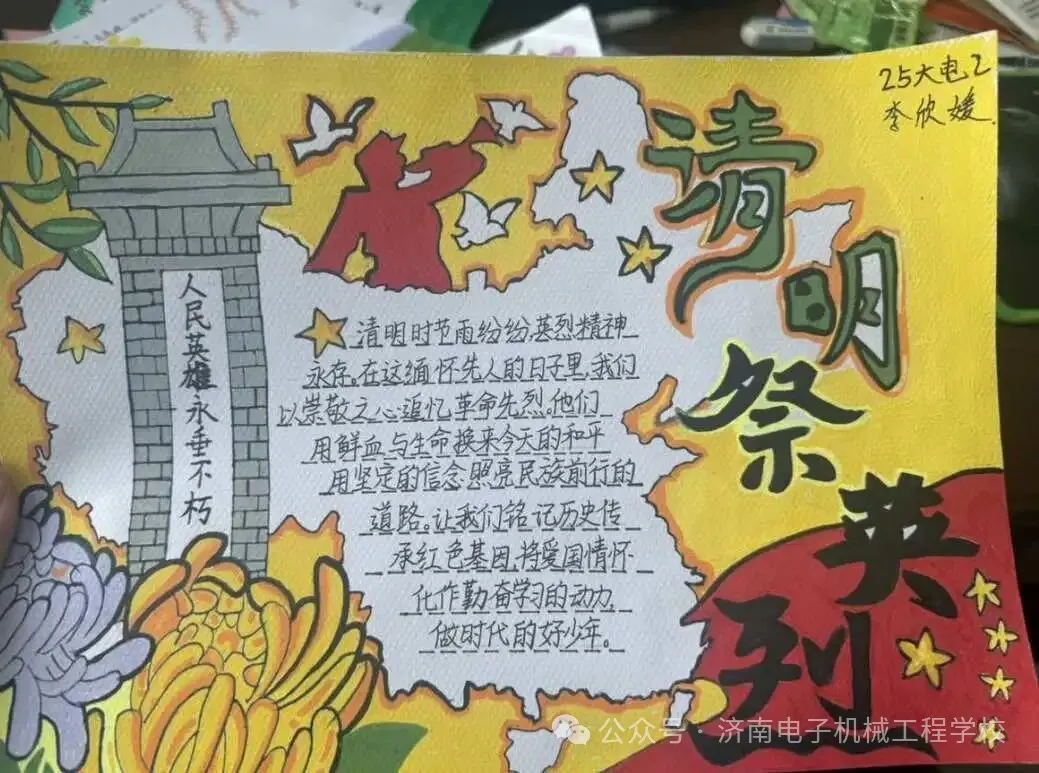 25大电2
李欣媛
清明
祭
英
烈
人民英雄永垂不朽
清明时节雨纷纷,英烈精神
永存。在这缅怀先人的日子里,我们
以崇敬之心追忆革命先烈。他们
用鲜血与生命换来今天的和平
用坚定的信念照亮民族前行的
道路。让我们铭记历史传
承红色基因,将爱国情怀
化作勤奋学习的动力,
做时代的好少年。
公众号·济南电子机械工程学校